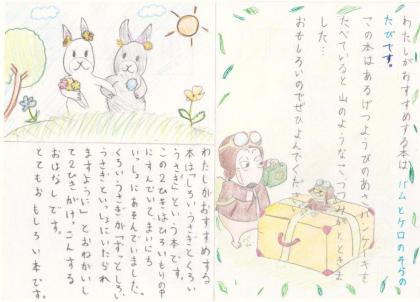 わたしがおすすめする本は、バムとケロのそらの
たびです。
この本はあるげつようびのあさ、パンケーキを
たべていると山のようなこづつみがとどきま
した…
おもしろいのでぜひよんでください
わたしがおすすめする
本は「しろいうさぎとくろい
うさぎ」という本です。
この2ひきはひろいもりの中
にすんでいて、まいにち
いっしょにあそんでいました。
くろいうさぎが「ずっとしろい
うさぎといっしょにいられ
ますように」とおねがいし
て2ひきがけっこんする
おはなしです。
とてもおもしろい本です。